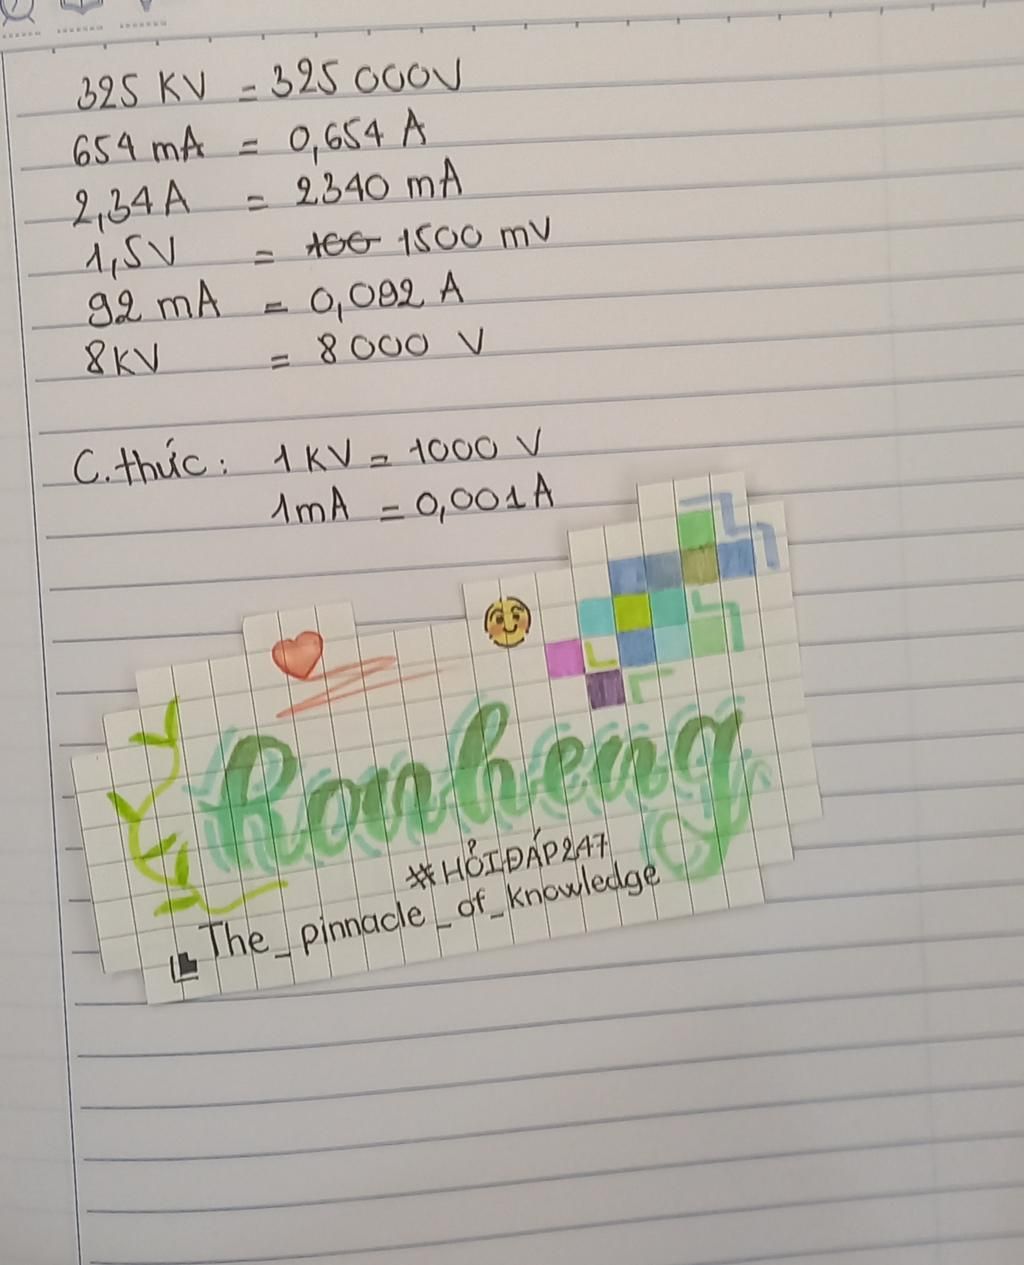 325 KV = 325 000V
654 mA = 0,654 A
2,34A = 2340 mA
1,5V = 100 1500 mV
92 mA = 0,092 A
8KV = 8000 V
C.thức: 1 KV = 1000 V
1mA = 0,001A
Ronheng
#HỎIĐÁP247
The_pinnacle_of_knowledge